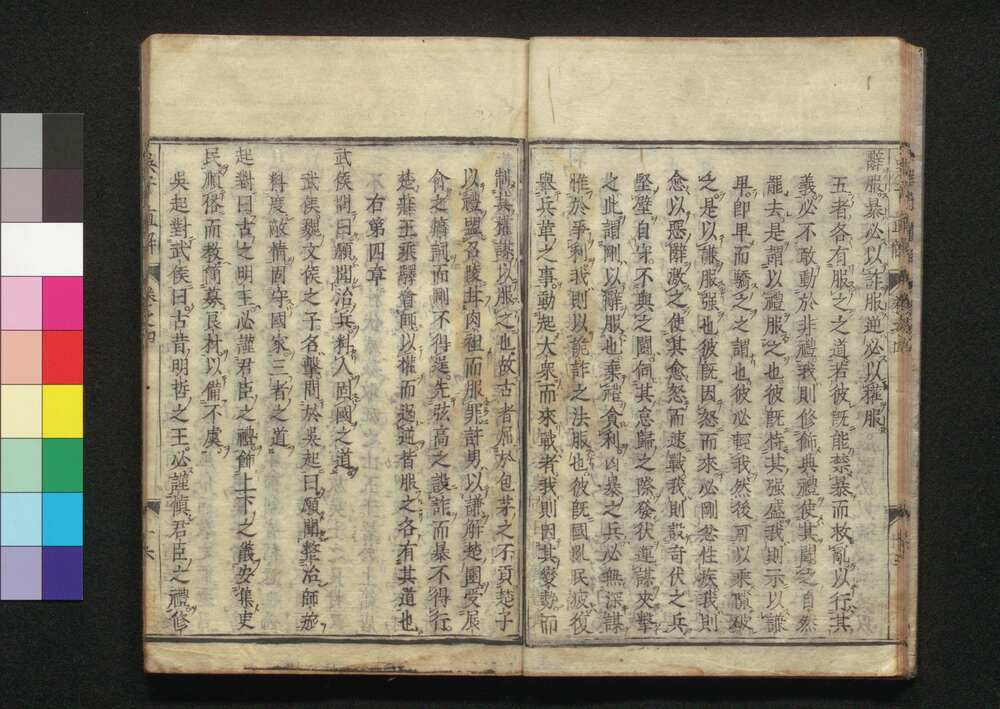 辭服暴必以詐服逆必以權服
五者各有服之之道若彼既能禁暴而救亂以行其
義必不敢動於非禮我則修飾典禮使其聞之自然
罷去是謂以禮服之也彼既恃其强盛我則示以謙
卑即卑而驕之之謂也彼必輕我然後可以乘隙破
之是以謙服强也彼既因怒而來必剛忿性疾我則
愈以惡辭激之使其愈怒而速戰我則設奇伏之兵
堅壁自守不與之鬪伺其怠歸之際發伏運謀夾擊
之此謂剛以辭服也棄禮貪利凶暴之兵必無深謀
惟於爭利我則以詭詐之法服也彼既國亂民疲復
舉兵革之事動起大衆而來戰者我則因其變勢而
制其權謀以服之也故古者屈於包茅之不貢楚子
以禮盟召陵井肉袒而服罪許男以謙解楚圍受展
會之辭詞而剛不得逞先弦高之設詐而暴不得行
楚莊王乘驛會師以權而過逆皆服之各有其道也
右第四章
武侯問曰願聞治兵料人固國之道
武侯魏文侯之子名擊問於吳起曰願聞整治師旅
料度敵情固守國家三者之道
起對曰古之明王必謹君臣之禮飾上下之儀安集吏
民順俗而教簡募良材以備不虞
吳起對武侯曰古昔明哲之王必謹愼君臣之禮修
吳子直解 卷之四 六